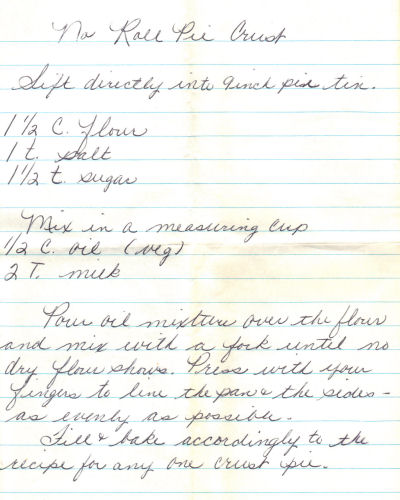 No Roll Pie Crust
Sift directly into 9inch pie tin.
1 1/2 C. flour
1 t. salt
1 1/2 t. sugar
Mix in a measuring cup
1/2 C. oil (veg)
2 T. milk
Pour oil mixture over the flour
and mix with a fork until no
dry flour shows. Press with your
fingers to line the pan & the sides -
as evenly as possible.
Fill & bake accordingly to the
recipe for any one crust pie.